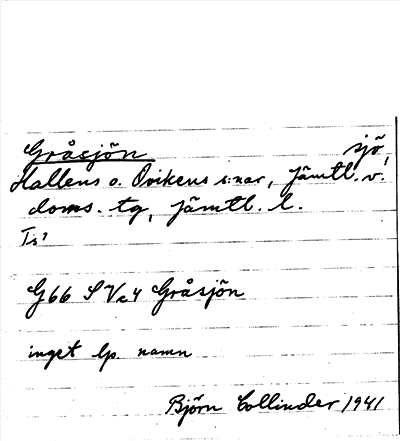 Gråsjön sjö,
Hallens o. Ovikens s:nar, Jämtl. v.
doms. tg, Jämtl. l.
G66 S Va4 Gråsjön
inget lp. namn
Björn Collinder 1941